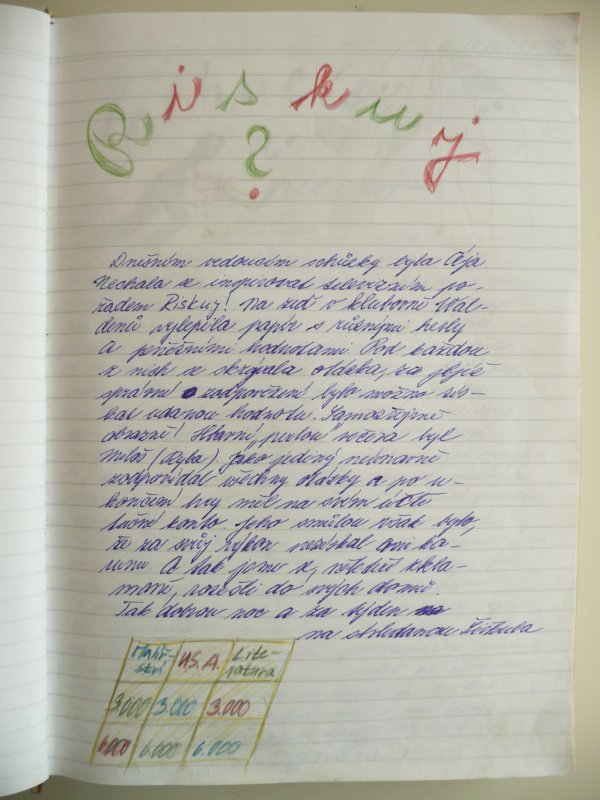 Riskuj
?
Dnešním vedoucím schůzky byla Ája.
Nechala se inspirovat televizním po-
řadem Riskuj! Na zeď v klubovně Wal-
denů vylepila papír s různými hesly
a peněžními hodnotami. Pod každou
z nich se skrývala otázka, za jejíž
správné zodpovězení bylo možno zís-
kat udanou hodnotu. Samozřejmě
obrazně! Hlavní "perlou" večera byl
Miloš (Ryba). Jako jediný neúnavně
zodpovídal všechny otázky a po u-
končení hry měl na svém účtě
tučné konto. Jeho smůlou však bylo,
že za svůj výkon nezískal ani ko-
runu. A tak jsme se, někteří zkla-
maně, rozešli do svých domů.
Tak dobrou noc a za týden
na shledanou
Malíř-
ství
U.S.A.
Lite-
ratura
3.000 3.000 3.000
6.000 6.000 6.000